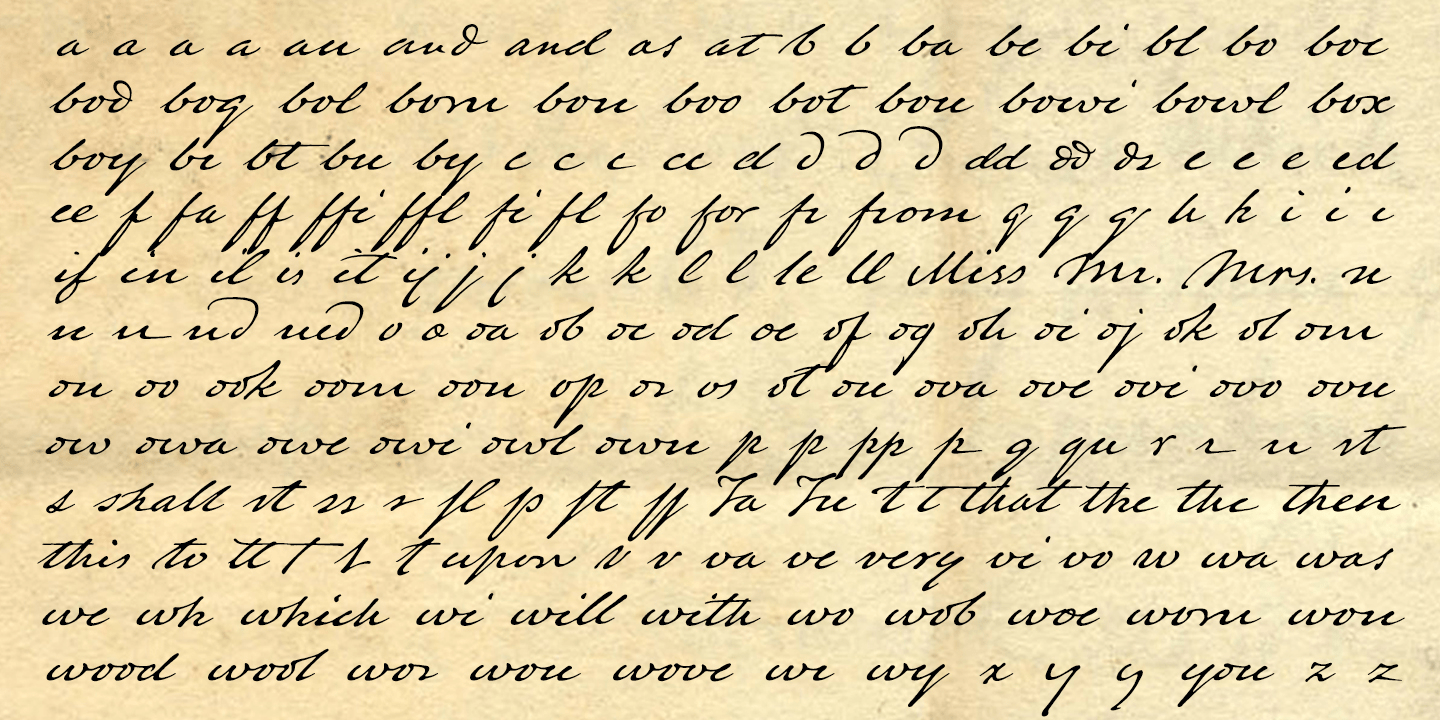 a a a a an and and as at b b ba be bi bl bo boe
bod bog bol bom bon boo bot bou bowi bowl box
boy br bt bu by c c c cc d d d d dd dd ds e e e ed
ee f fa ff ffi ffl fi fl fo for fr from g g g h h i i i
if in il is it ij j j k k l l le ll Miss Mr. Mrs. n
n n nd ned o o oa ob oc od oe of og oh oi oj ok ol om
on oo ook oom oon op or os ot ou ova ove ovi ovo ovu
ow owa owe owi owl own p p pp p q qu r r rr rt
s shall st ss s fl p ft ff Ta Tu t t that the the then
this to tt t t t upon v v va ve very vi vo w wa was
we wh which wi will with wo wob woe wom won
wood wool wor wou wove wr wy x y y you z z